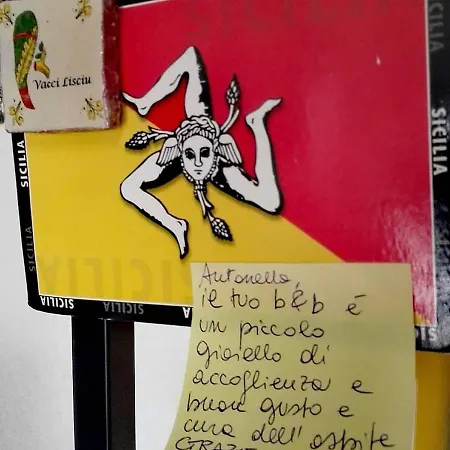 Vacci Lisciu
SICILIA
SICILIA
SICILIA
SICILIA
SICILIA
SICILIA
SICILIA
SICILIA
SICILIA
Antonella,
il tuo b&b é
un piccolo
gioiello di
accoglienza e
buon gusto e
cura dell'ospite
GRAZIE